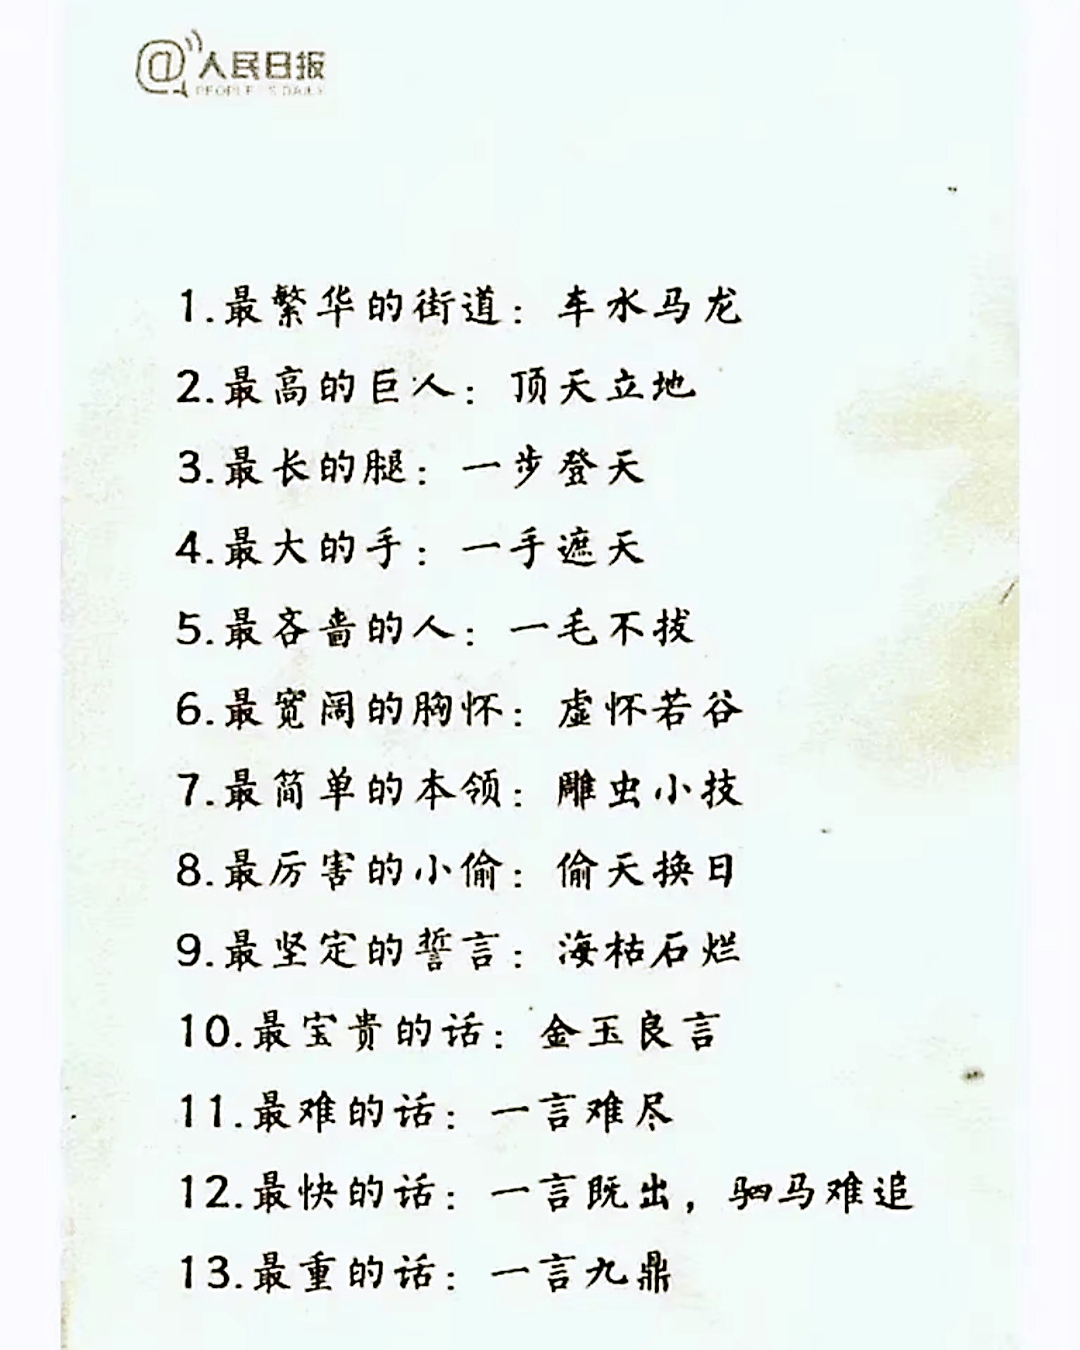 @人民日报
PEOPLE'S DAILY
1.最繁华的街道：车水马龙
2.最高的巨人：顶天立地
3.最长的腿：一步登天
4.最大的手：一手遮天
5.最吝啬的人：一毛不拔
6.最宽阔的胸怀：虚怀若谷
7.最简单的本领：雕虫小技
8.最厉害的小偷：偷天换日
9.最坚定的誓言：海枯石烂
10.最宝贵的话：金玉良言
11.最难的话：一言难尽
12.最快的话：一言既出，驷马难追
13.最重的话：一言九鼎